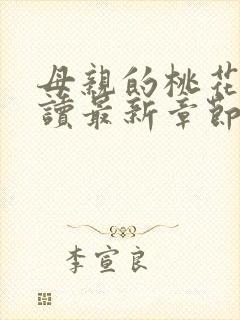 母親的桃花
讀最新章節
李宣良